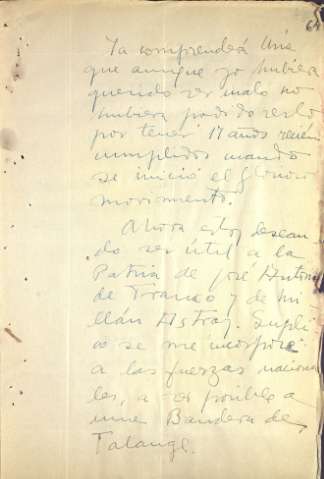 64
Ya comprenderá
que aunque yo hubiera
querido ser malo no
hubiera podido serlo
por tener 17 años recién
cumplidos cuando
se inició el Glorioso
movimiento.
Ahora estoy desean
do ser útil a la
Patria de José Antonio
de Franco y de Mi
llán Astray. Supli
co se me incorpore
a las fuerzas naciona
les, a ser posible a
una Bandera de
Falange.